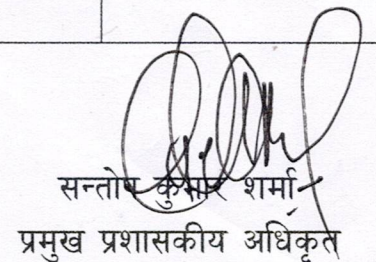 सन्तोष कुमार शर्मा
प्रमुख प्रशासकीय अधिकृत